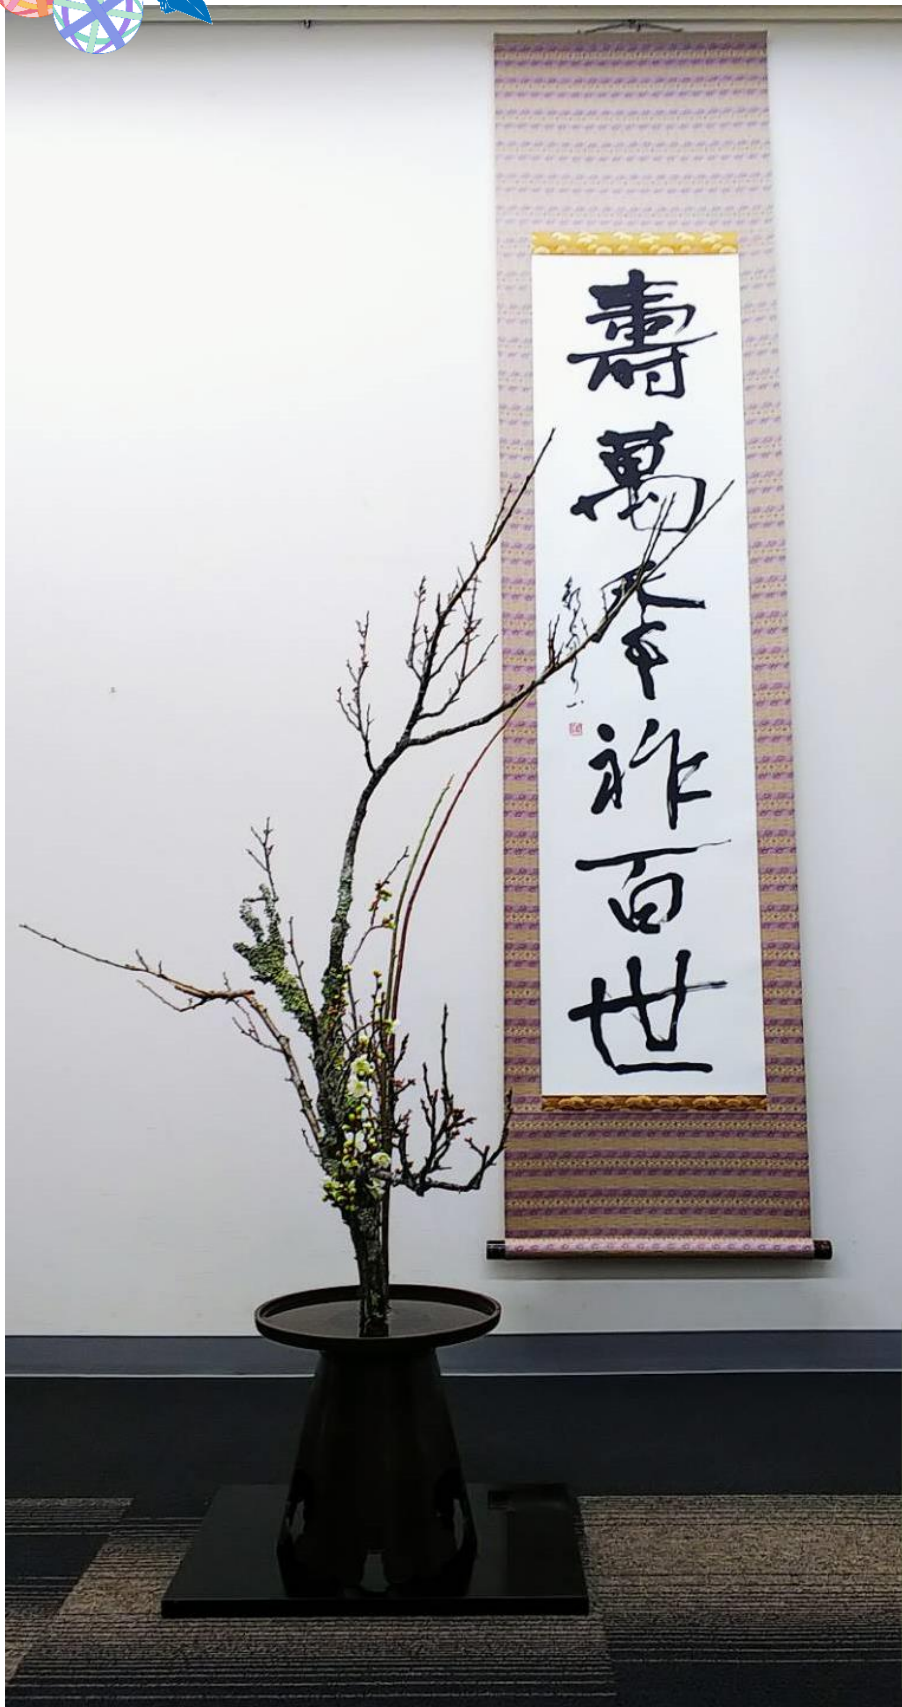 壽萬年祚百世